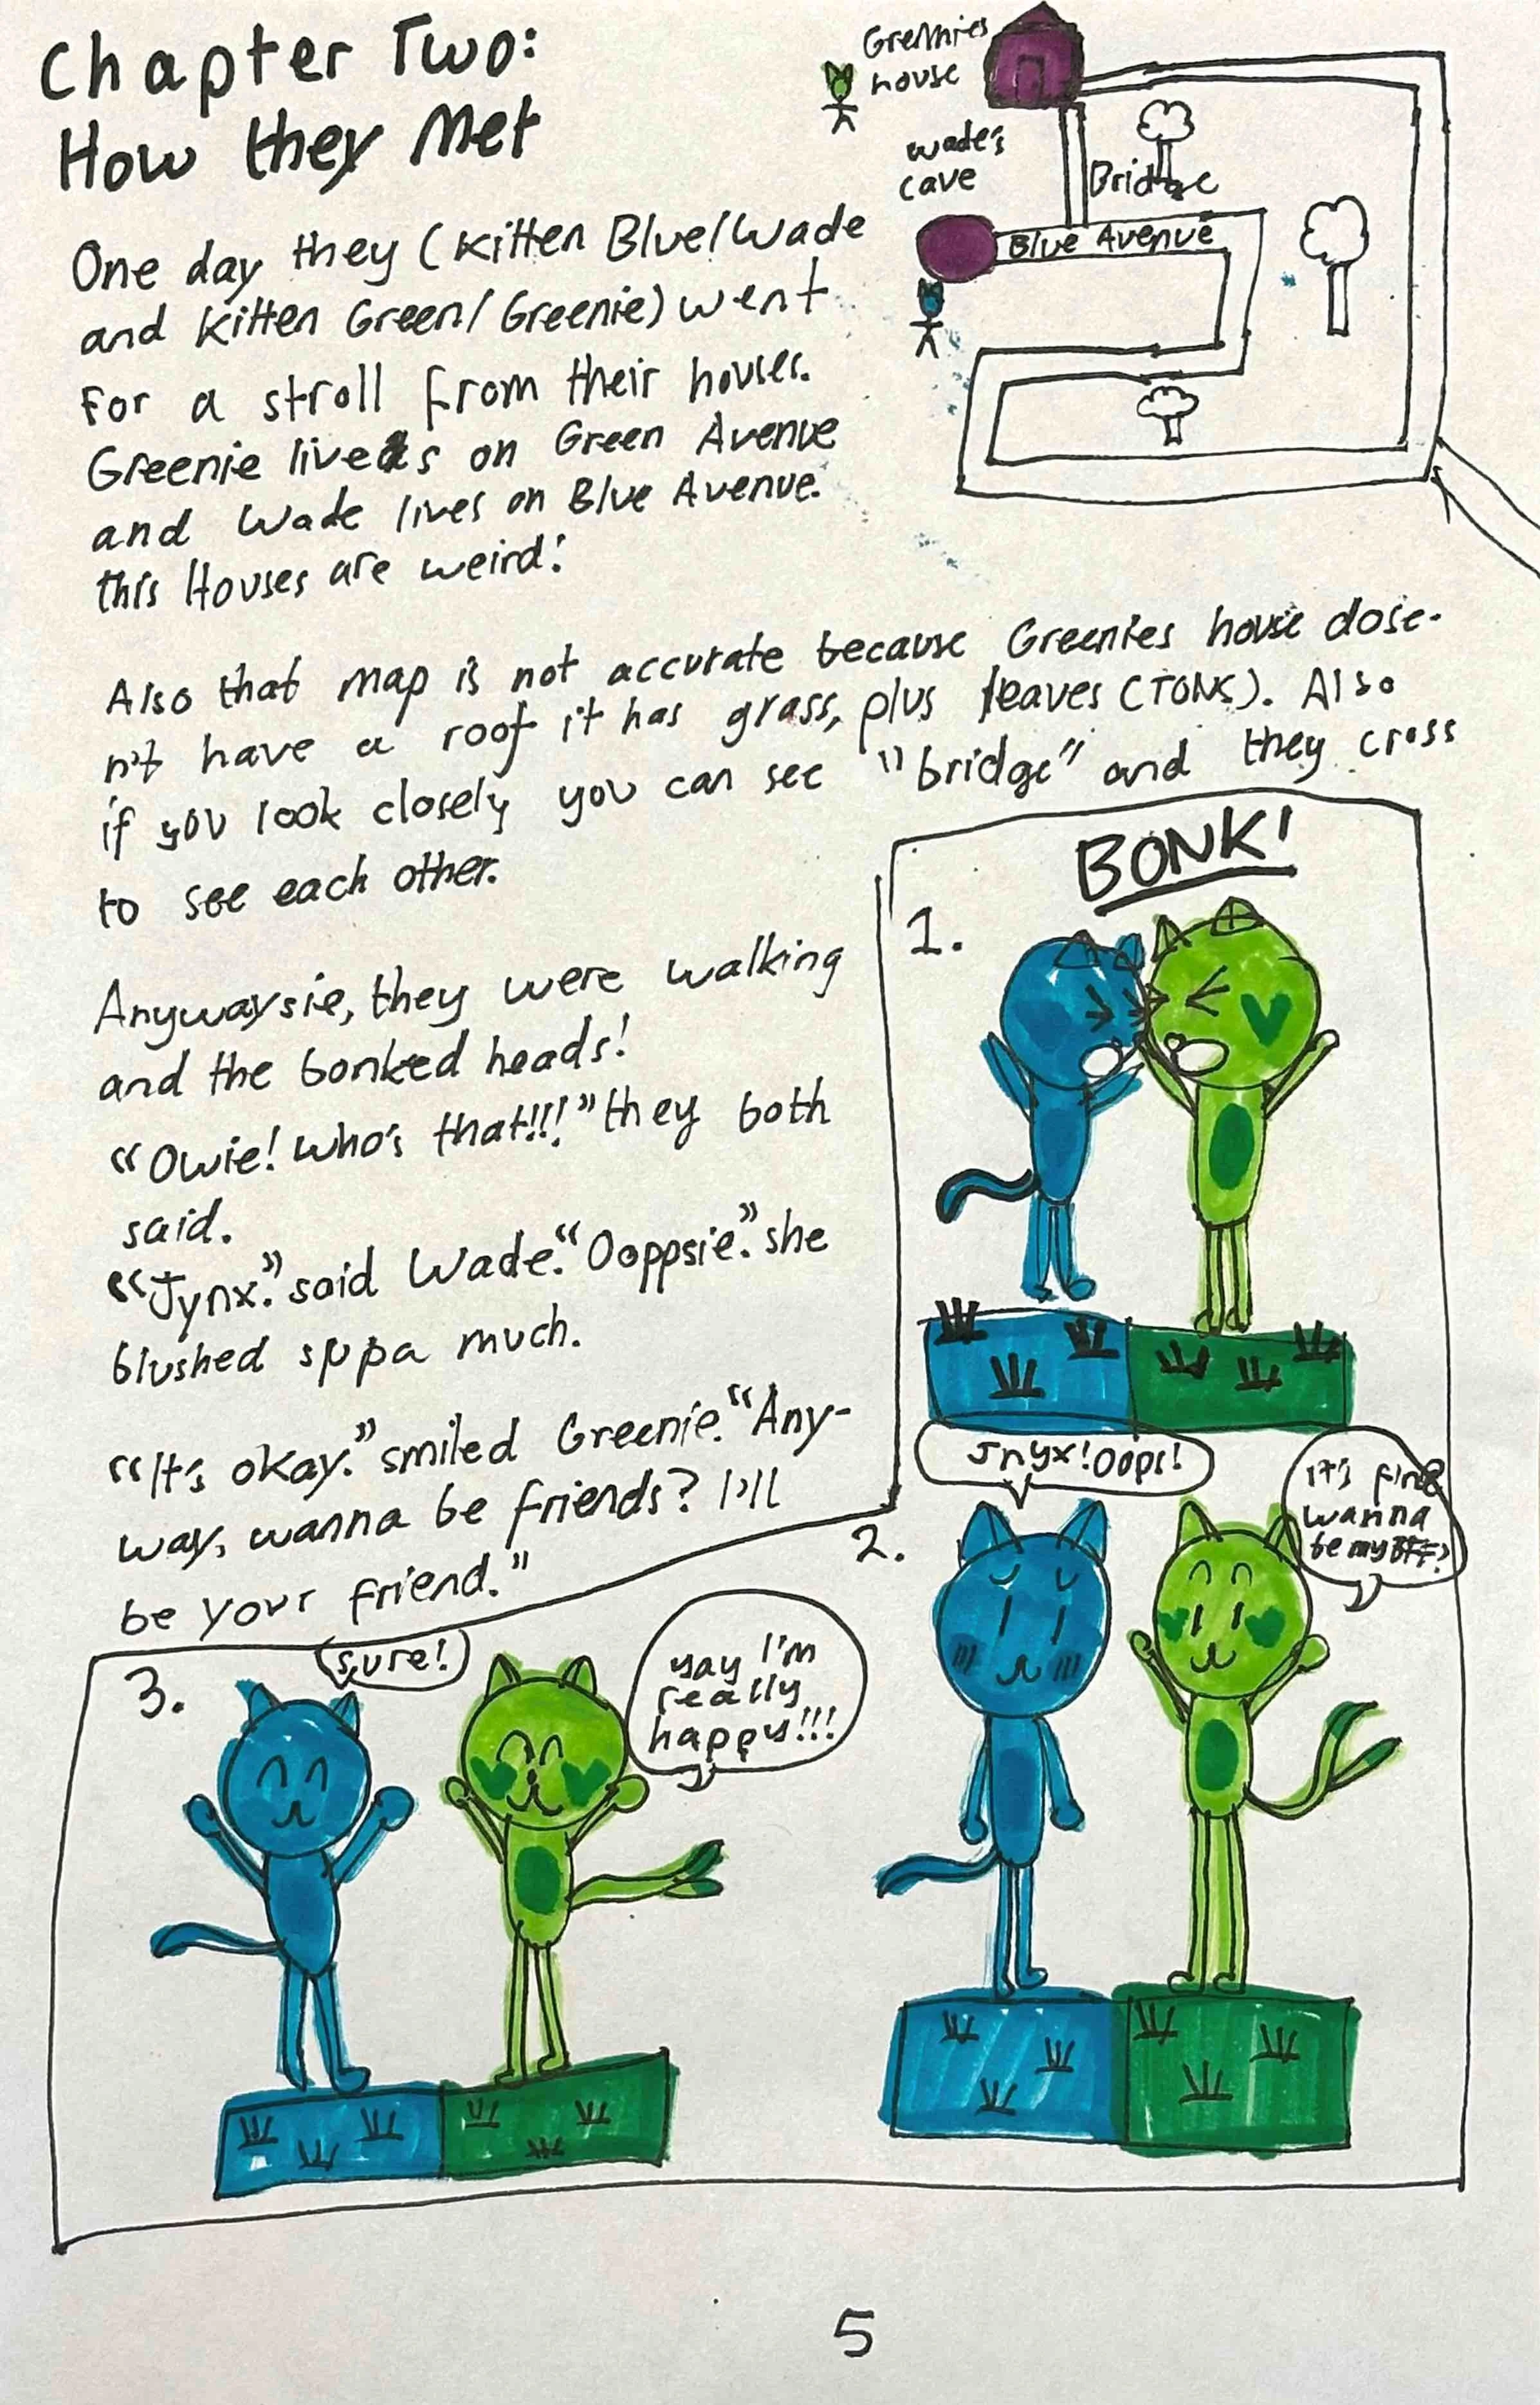 Chapter Two:
How they Met
Greenies
house
Wade's
cave
Bridge
Blue Avenue
One day they (Kitten Blue/Wade
and Kitten Green/Greenie) went
for a stroll from their houses.
Greenie lives on Green Avenue
and Wade lives on Blue Avenue.
this Houses are weird!
Also that map is not accurate because Greenies house dose-
n't have a roof it has grass, plus leaves (TONS). Also
if you look closely you can see "bridge" and they cross
to see each other.
Anywaysie, they were walking
and the bonked heads!
"Owie! Who's that!!!" they both
said.
"Jynx." said Wade. "Ooppsie." she
blushed suppa much.
"It's okay." smiled Greenie. "Any-
way, wanna be friends? I'll
be your friend."
1.
BONK!
2.
Jnyx! Oops!
it's fine
wanna
be my BFF?
3.
sure!
yay I'm
really
happy!!!
5